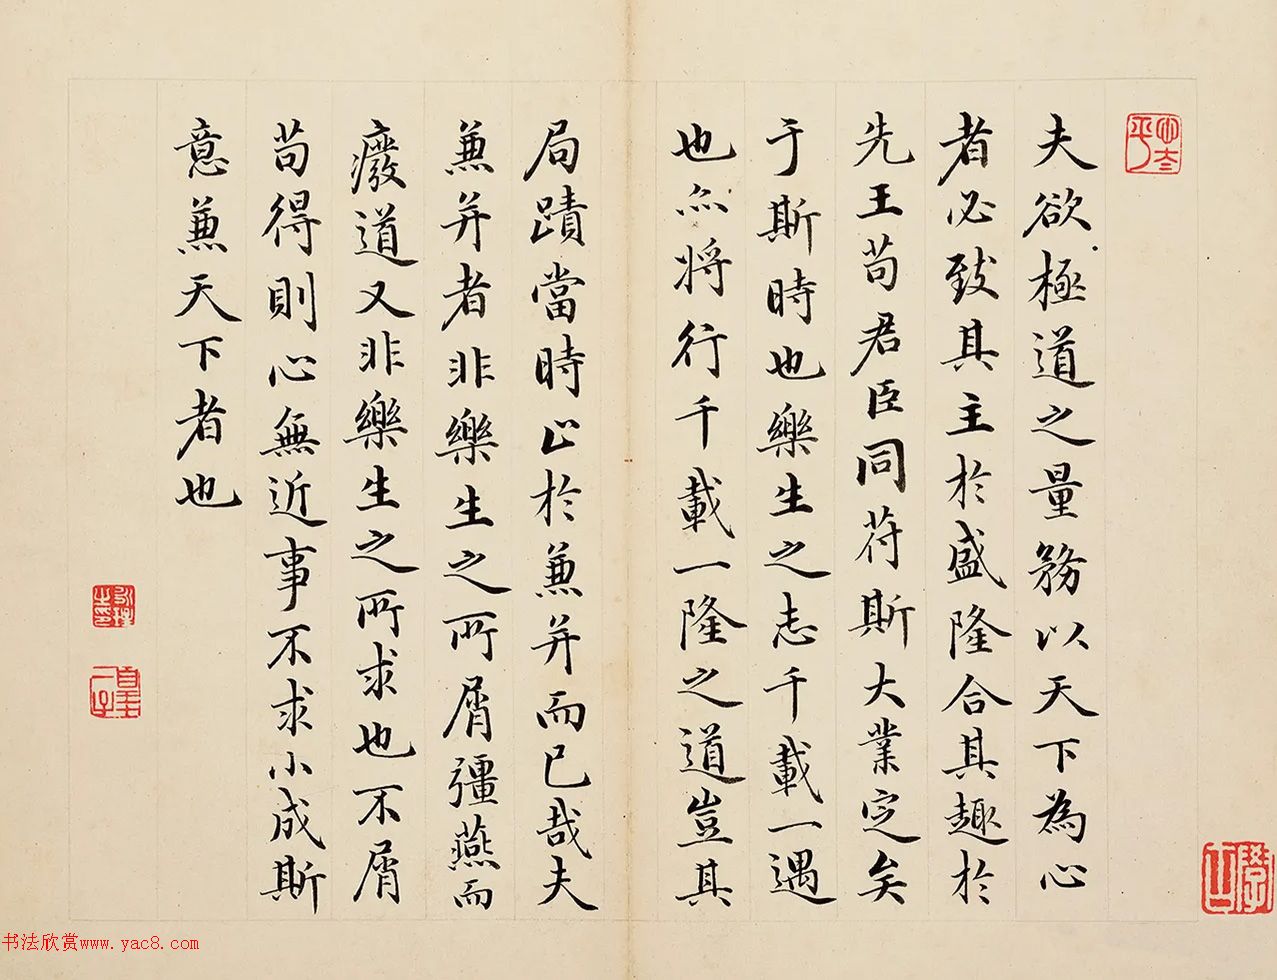 夫欲極道之量務以天下為心
者必致其主於盛隆合其趣於
先王苟君臣同苻斯大業定矣
于斯時也樂生之志千載一遇
也亦將行千載一隆之道豈其
局蹟當時止於蒹并而已哉夫
蒹并者非樂生之所屑彊燕而
癈道又非樂生之所求也不屑
苟得則心無近事不求小成斯
意蒹天下者也
书法欣赏www.yac8.com